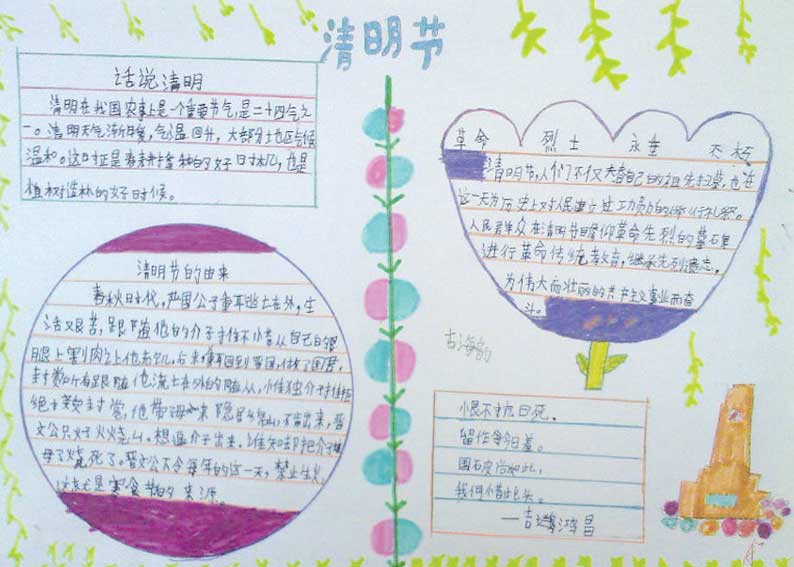 清明节
话说清明
清明在我国农事上是一个重要节气,是二十四气之
一。清明天气渐暖,气温回升,大部分土地区气候
温和。这时正是春耕播种的好时机,也是
植树造林的好时候。
清明节的由来
春秋时代,晋国公子重耳逃亡在外,生
活艰苦,跟随他的介子推不惜从自己的腿
上割肉
回到晋国,做了国君,
封赏所有跟随他流亡在外的随从,介子推
绝封赏,他带母隐居绵山,不肯出来,晋
文公只好火烧山,想逼介子出来,谁知却把介子
母子烧死了。晋文公下令每年的这一天,禁止生火,
这就是寒食节的来源。
革命 烈士 永垂 不朽
清明节,人们不仅是自己的祖先扫墓,也在
这一天为历史上对人民建立过功勋的
人民群众在清明节瞻仰革命先烈的墓
进行革命传统教育,继承先烈遗志,
为伟大而壮丽的共产主义事业而奋
斗。
吉海韵
小恨不抗日死,
留作今日羞。
国破尚如此,
我何惜此头。
——吉鸿昌